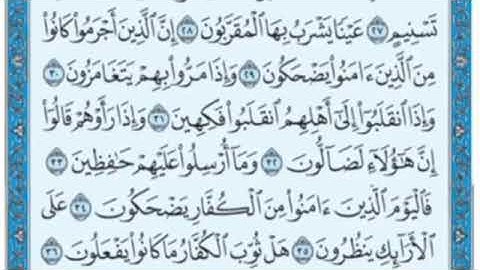 تَسْنِيمٍ ٢٧ عَيْنًا يَشْرَبُ بِهَا الْمُقَرَّبُونَ ٢٨ إِنَّ الَّذِينَ أَجْرَمُوا۟ كَانُوا۟
مِنَ الَّذِينَ ءَامَنُوا۟ يَضْحَكُونَ ٢٩ وَإِذَا مَرُّوا۟ بِهِمْ يَتَغَامَزُونَ ٣٠
وَإِذَا انقَلَبُوٓا۟ إِلَىٰٓ أَهْلِهِمُ انقَلَبُوا۟ فَكِهِينَ ٣١ وَإِذَا رَأَوْهُمْ قَالُوٓا۟
إِنَّ هَـٰٓؤُلَآءِ لَضَآلُّونَ ٣٢ وَمَآ أُرْسِلُوا۟ عَلَيْهِمْ حَـٰفِظِينَ ٣٣
فَالْيَوْمَ الَّذِينَ ءَامَنُوا۟ مِنَ الْكُفَّارِ يَضْحَكُونَ ٣٤ عَلَى
الْأَرَآئِكِ يَنظُرُونَ ٣٥ هَلْ ثُوِّبَ الْكُفَّارُ مَا كَانُوا۟ يَفْعَلُونَ ٣٦